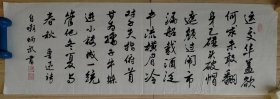 运交华盖欲
何求未敢翻
身已碰头破帽
遮颜过闹市
漏船载酒泛
中流横眉冷
对千夫指俯首
甘为孺子牛躲
进小楼成一统
管他冬夏与
春秋 鲁迅诗
自嘲 炳武书